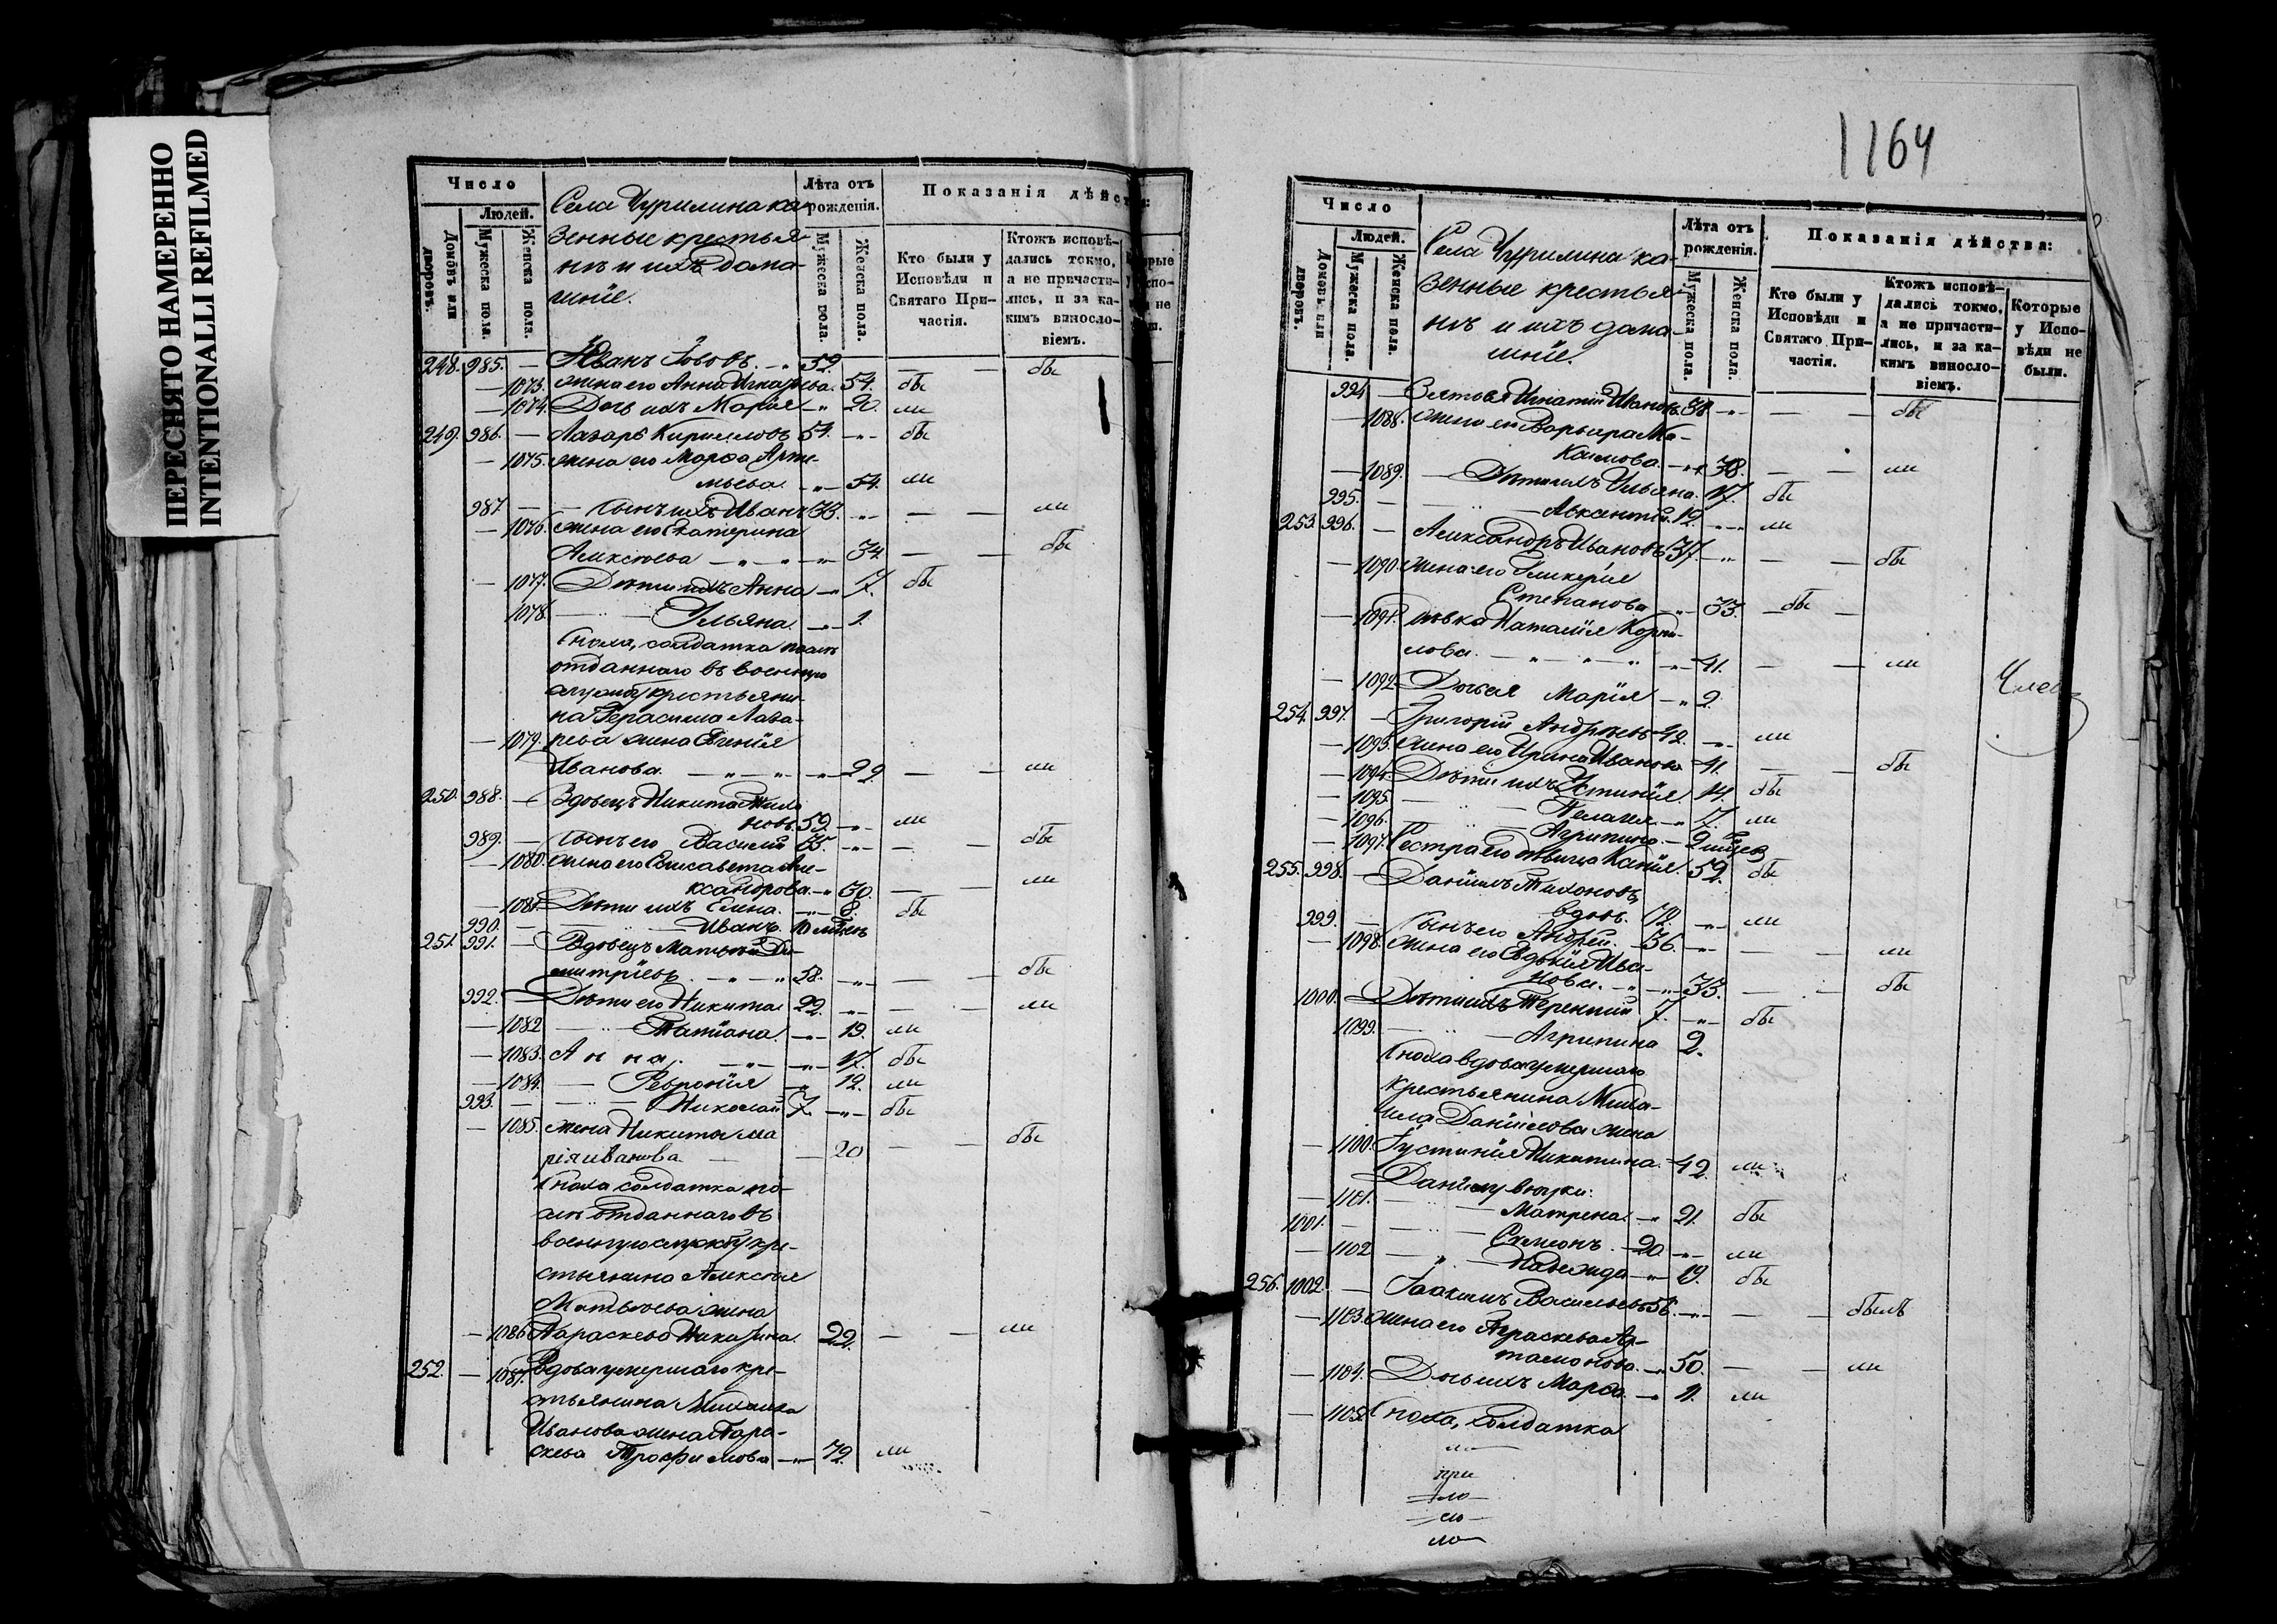 ПЕРЕСНЯТО НАМЕРЕННО
INTENTIONALLI REFILMED
Число
Людей.
Домовъ или дворовъ.
Мужеска пола.
Женска пола.
Села Чурилина ка-
зенные крестья-
нѣ и ихъ дома-
шніе.
Лѣта отъ рожденія.
Мужеска пола.
Женска пола.
Показанія дѣйст
Кто были у Исповѣди и Святаго При-
частія.
Ктожъ исповѣ-
дались токмо,
а не причасти-
лись, и за ка-
кимъ виносло-
віемъ.
248. 985. — Иванъ Іововъ. 59. — — бы
— 1073. жена его Анна 54. бы
— 1074. Дочь ихъ Марія — 20. ли
249. 986. — Лазарь Кирилловъ 54. бы
— 1075. жена его Марѳа Арте-
мьева. 54. ли
987. — — Сынъ ихъ Иванъ 33. — — ли
— 1076. жена его Екатерина
Алексѣева 34 — — бы
— 1077. Дѣти ихъ Анна — 7. бы
1078. Ульяна. 1.
Сноха, солдатка
отданнаго въ военную
службу крестьяни-
на Герасима Лаза-
— 1079. рева жена Евгенія
Иванова. 29 — — ли
250. 988. — Вдовецъ Никита
новъ 59. ли
989. — Сынъ его Василій 35. — — бы
— 1080. жена его Елисавета Але-
ксандрова. 30. — — ли
— 1081. Дѣти ихъ Елена. 8. бы
990. Иванъ. 10
251. 991. — Вдовецъ Матвѣй Ди-
митріевъ. 58. — — бы
992. — Дѣти его Никита 22. — — ли
— 1082 Татіана. 19. ли
— 1083. Анна. 17. бы
— 1084. Февронія 12. ли
993. Николай 7. бы
— 1085. жена Никиты Ма
рія иванова. 20 — — бы
Сноха солдатка по-
отданнаго въ
военную службу кре-
стьянина Алексѣя
Матвѣева жена
— 1086 Параскева 22. — — ли
252. — 1087. Вдова умершаго кре-
стьянина Михаила
Иванова жена Пара-
скева Трофимова 72. ли
1164
Число
Людей.
Домовъ или дворовъ.
Мужеска пола.
Женска пола.
Села Чурилина ка-
зенные крестья-
нѣ и ихъ дома-
шніе.
Лѣта отъ рожденія.
Мужеска пола.
Женска пола.
Показанія дѣйства:
Кто были у Исповѣди и Святаго При-
частія.
Ктожъ исповѣ-
дались токмо,
а не причасти-
лись, и за ка-
кимъ виносло-
віемъ.
Которые у Испо-
вѣди не были.
994 — Игнатій Ивановъ 38 — — бы
— 1088. жена его Варвара Ма-
ксимова. 38. — — ли
— 1089. — Дѣти ихъ Ульяна. 17. бы
995. Авксентій. 12. ли
253. 996. — Александръ Ивановъ 37. — — бы
— 1090. жена его Гликерія
Степанова 33. — бы —
— 1091. Наталія Корни-
лова. 41. — — ли
— 1092. Дочь ея Марія 2
254. 997. — Григорій Андреевъ 42. ли
— 1093. жена его Ирина Иванова 41. — — бы
— 1094. Дѣти ихъ Устинія. 14. бы
— 1095. Пелагея. 7. ли
— 1096. Агрипина. 9
— 1097. Сестра его дѣвица Ксенія. 52. бы
255. 998. — Даніилъ Тихоновъ
вдовъ. 72. ли
999. — Сынъ его Андрей. 36. — — ли
— 1098. жена его Евдокія Ива-
нова. 33. — — бы
1000. — Дѣти ихъ Терентій 7. бы
1099. Агрипина 2.
Сноха вдова умершаго
крестьянина Миха-
ила Даніилова жена
— 1100. Іустинія Никитина. 42. ли
Даніилу внуки:
— 1101. Матрена. 21. бы
1001. Симеонъ. 20. ли
— 1102 Надежда 19. бы
256. 1002. — Іоакимъ Васильевъ 56. — — былъ
— 1103. жена его Параскева Ар-
тамонова. 50. — — ли
— 1104. Дочь ихъ Марѳа. 11. ли
— 1105. Сноха, солдатка